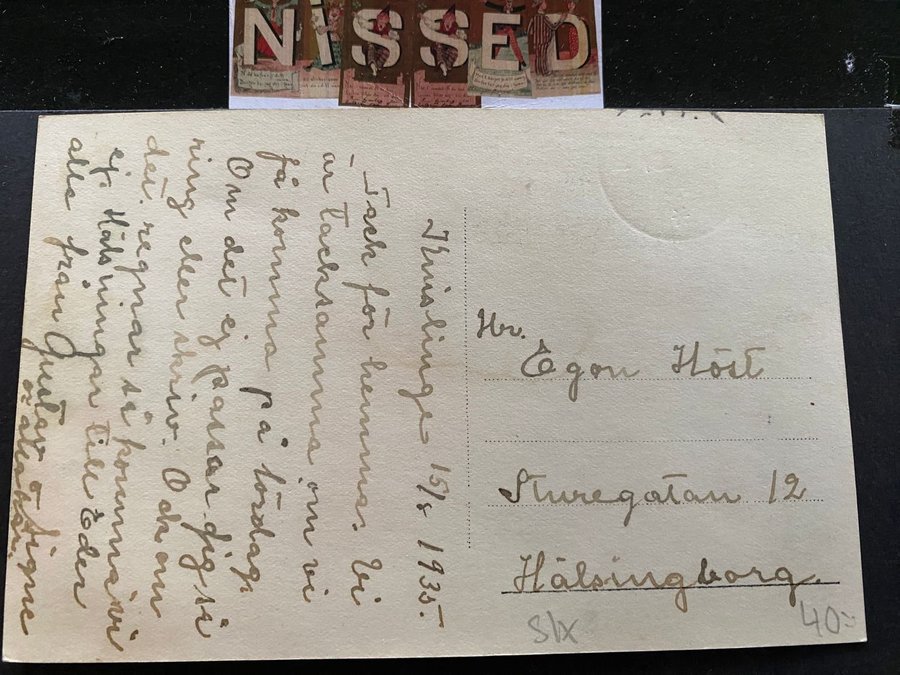 NISSED
Knislinge 15/8 1935.
Tack för hemma. Vi
är tacksamma om vi
få komma på lördag.
Om det ej passar dig så
ring eller skriv. Och om
det regnar så komma vi
ej. Hälsningar till Eder
alla från Gustav o Signe
Hr.
Egon Höst
Sturegatan 12
Hälsingborg.
40:-